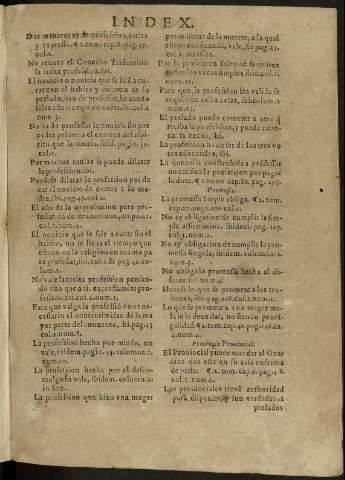 INDEX.
Dos maneras ay de profession, tacita
y expressa. ¶ 2. tom. cap.8. pag.37.
col.2.
No reuocò el Concilio Tridentino
la tacita profession. ibi.
El nouicio o nouicia que sale a cu-
rar con el habito y licencia de su
prelado, han de professar,
No ha de professar la nouicia sin pre
ceder primero el examen del espi-
ritu que la mouio, ibid. pagin.
col.1.
Por muchas causas se puede dilatar
la profession. ibi.
Puedese dilatar la profession por de
xar el nouicio de comer a su ma
dre, ibi. pag. 39. col.2.
El año de la approbacion para pro-
fessar, ha de ser continuo, ibi. pag. 41.
col.1. num.2.
El nouicio que se sale a curar sin el
habito, no se lleua el tiempo que
estuuo en la religion en cuenta pa
ra professar, ibi. col.2. pag. 42. co-
lum.1.
No vale la tacita profession pensan-
do vno que
fessado. ibi. col.2. num.5.
Para que valga la professiō no es ne-
cessario el consentimiēto de la ma
yor parte del conuento, ibi. pag. 43
col.1. num.2.
La profession hecha por miedo, no
vale, ibidem. pagin. 44. columna.2.
num.12.
La profession hecha por el desco-
mulgado vale, ibidem. colum.2.
in fine.
La profession que hizo vna muger
por se librar de la muerte, a la qual
estaua condenada, vale, ibi. pag. 45.
col.1. num.12.
Por la profession solene se quitan
todos los votos simples, ibid. col.2.
num.12.
Para que la profession sea valida se
requieren ocho cosas, ibi. colum.2.
num.13.
El prelado puede cometer a otro q̄
reciba la profession, y puede ratifi-
car la hecha, ibi.
La profession ha de ser de los tres vo
tos essenciales, ibi.
La donzella constreñida a professar
no ratifica la profession por pagar
la dote, ¶ 2. tom. cap.80. pag. 295.
Promessa.
La promessa simple obliga. ¶ 2. tom.
cap.27. pag. 106. col.2.
No ay obligacion de cumplir la sim-
ple affirmacion. ibidem. pag. 107.
col.1. num.2.
No ay obligacion de cumplir la pro-
messa fingida, ibidem. columna.1.
num.3.
No obliga la promessa hecha al ab-
sente
Dense lo que se promete a los tru-
hanes, ibi. pag. 108. col.1. num.5.
Lo que se prometio a vna muger ma
la se le deue dar, no siendo proti-
galidad. ¶ 2. tom. cap.40. pag. 156. co.
2. num.2.
Prouincia Prouincial.
El Prouincial puede mandar al Guar
dian que este en su casa en tiempo
de peste. ¶ 2. tom. cap.9. pag. 48.
col.2.
Los prouinciales tienē authoridad
para dispensar, y son verdaderos
prelados